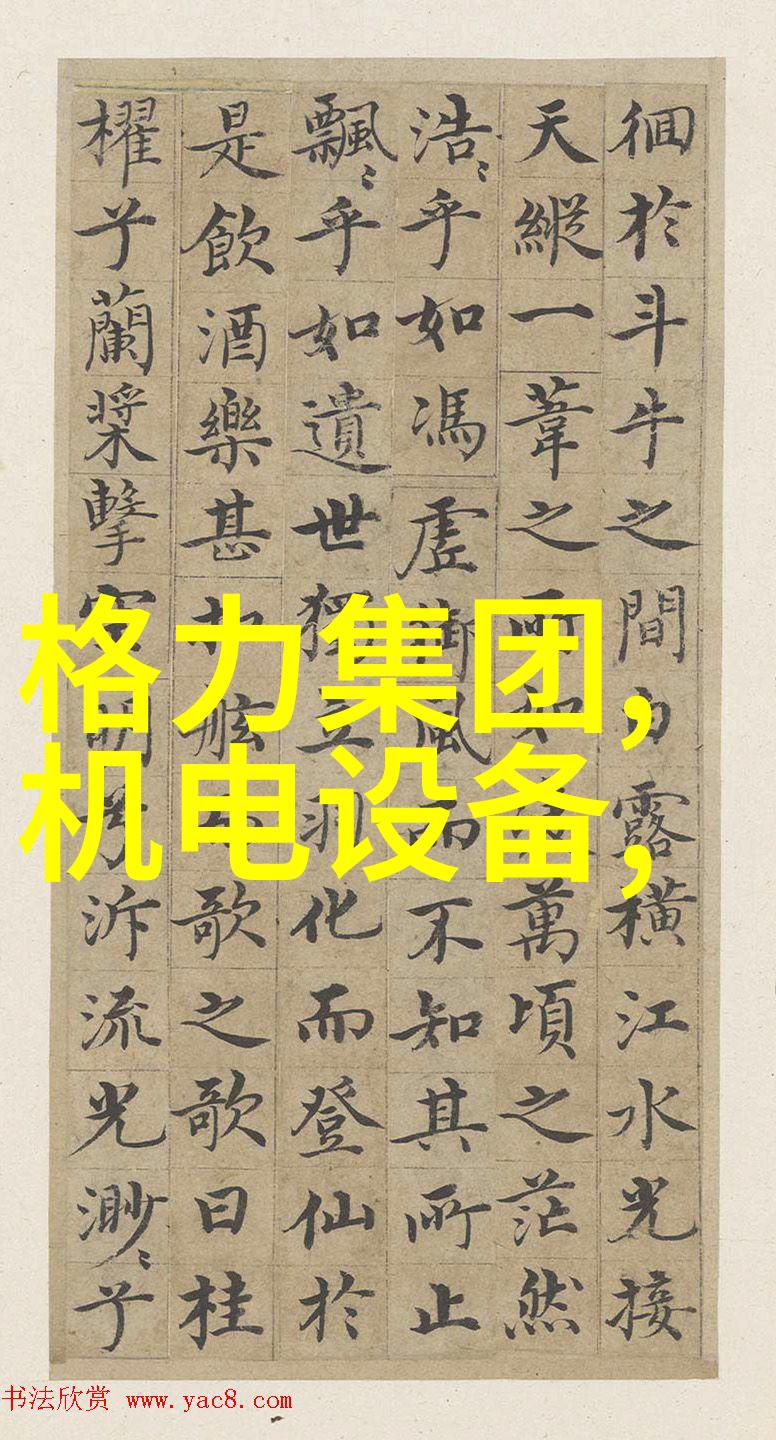 徊於斗牛之間白露橫江水光接
天縱一葦之所如萬頃之茫然
浩〻乎如馮虛御風而不知其所止
飄〻乎如遺世獨立羽化而登仙於
是飲酒樂甚扣舷而歌之歌曰桂
櫂兮蘭槳擊空明兮泝流光渺〻兮
格力集团,
机电设备,
书法欣赏 www.yac8.com